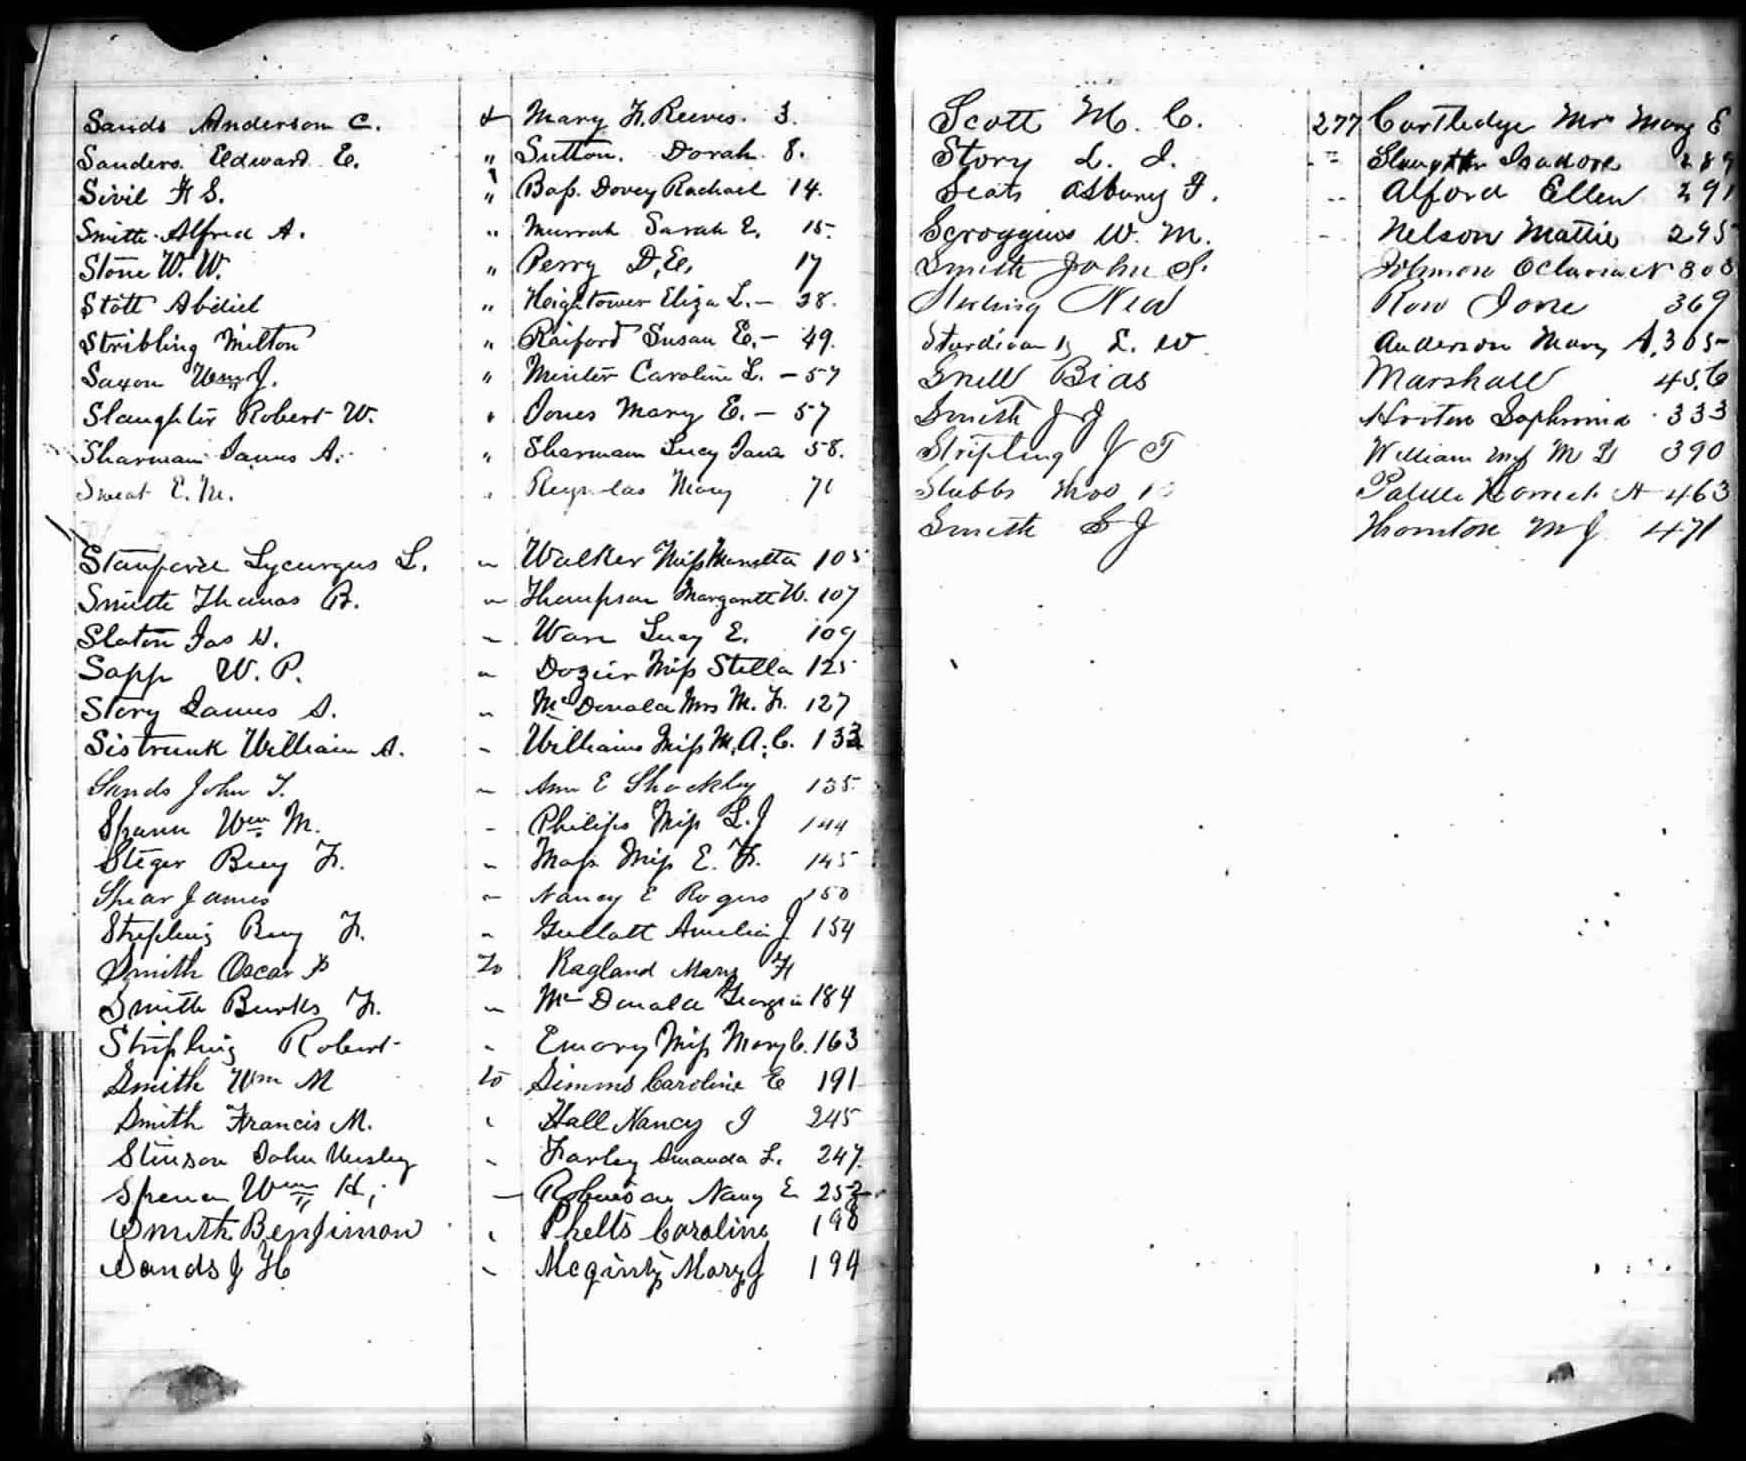 Sands Anderson C. & Mary F. Reeves. 3.
Sanders. Eldward E. " Sutton. Dorah 8.
Sivil H S. " Bass. Dovey Rachael 14.
Smith Alfred A. " Murrah Sarah E. 15.
Stone W. W. " Perry D. E. 17
Stott Abdiel " Heightower Eliza L. - 28.
Stribling Milton " Raiford Susan E. - 49.
Saxon Wm J. " Minter Caroline L. - 57
Slaughter Robert W. " Jones Mary E. - 57
Sharman James A. " Sharman Lucy Jane 58.
Sweat E. M. " Mary 71
Stanford Lycurgus L. " Walker Miss 105
Smith Thomas B. " Thompson Margarett W. 107
Slaton Jas H. " Ware Lucy E. 109
Sapp W. P. " Dozier Miss Stella 125
Story James S. " McDonald Mrs M. F. 127
Sistrunk William A. " Williams Miss M. A. C. 133
Sands John T. " Ann E Shockley 135
Spann Wm M. " Philips Miss L. J 144
Steger Benj F. " Moss Miss E. F. 145
Shear James " Nancy E Rogers 150
Stripling Benj F. " Gullatt Amelia J 154
Smith Oscar P to Ragland Mary H
Smith Burks F. " McDonald Georgia 184
Stripling Robert " Emory Miss Mary C. 163
Smith Wm M to Simms Caroline E 191
Smith Francis M. " Hall Nancy J 245
Stinson John Wesley " Farley Amanda L. 247
Wm H. " Robinson Nancy E 252
Smith Benjimon " Phelts Caroline 198
Sands J H " Mcginty Mary J 194
Scott M. C. 277 Cartledge Mrs Mary E
Story L. J. " Slaughter Isadore 289
Seats Asbury F. " Alford Ellen 291
Scroggins W. M. " Nelson Mattie 295
Smith John S. Johnson 308
Sterling Ned Row Jane 369
L. W. Anderson Mary A. 305
Snell Bias Marshall 456
Smith J J Sophronia 333
Stripling J T William M 390
Stubbs 463
Smith S J Thornton M J 471